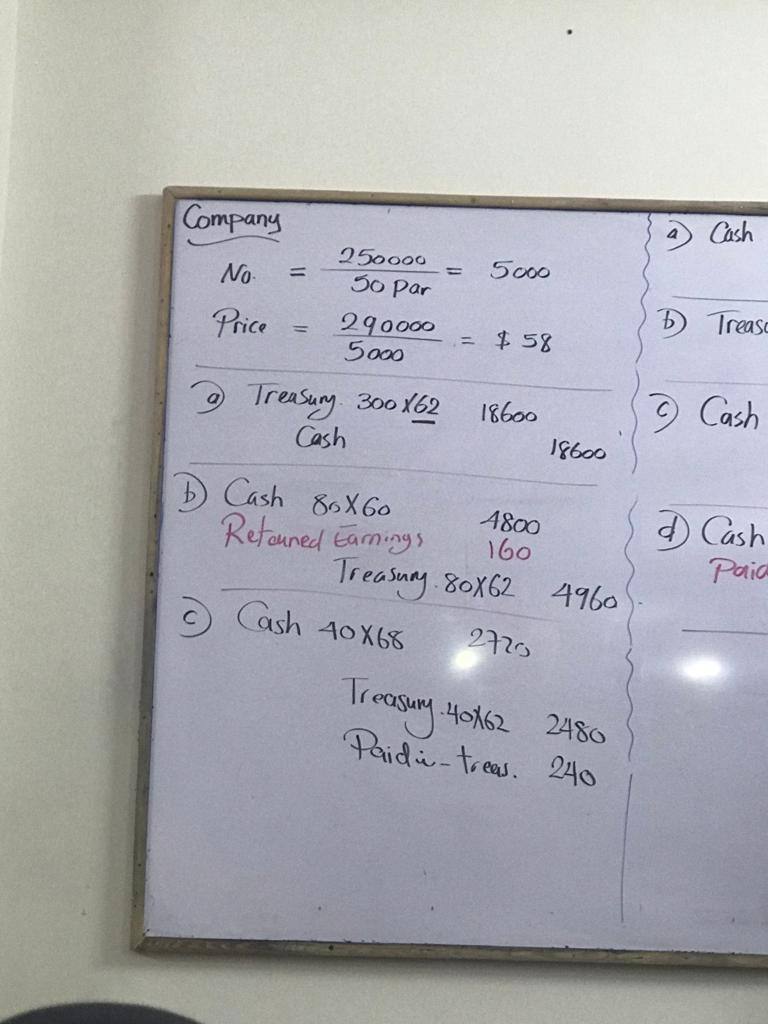 Company
No. = 250000 / 50 par = 5000
Price = 290000 / 5000 = $ 58
a) Treasury. 300 X 62 18600
Cash 18600
b) Cash 80X60 4800
Retained Earnings 160
Treasury. 80X62 4960
c) Cash 40X68 2720
Treasury. 40X62 2480
Paid in - treas. 240
a) Cash
b) Treasu
c) Cash
d) Cash
Paid